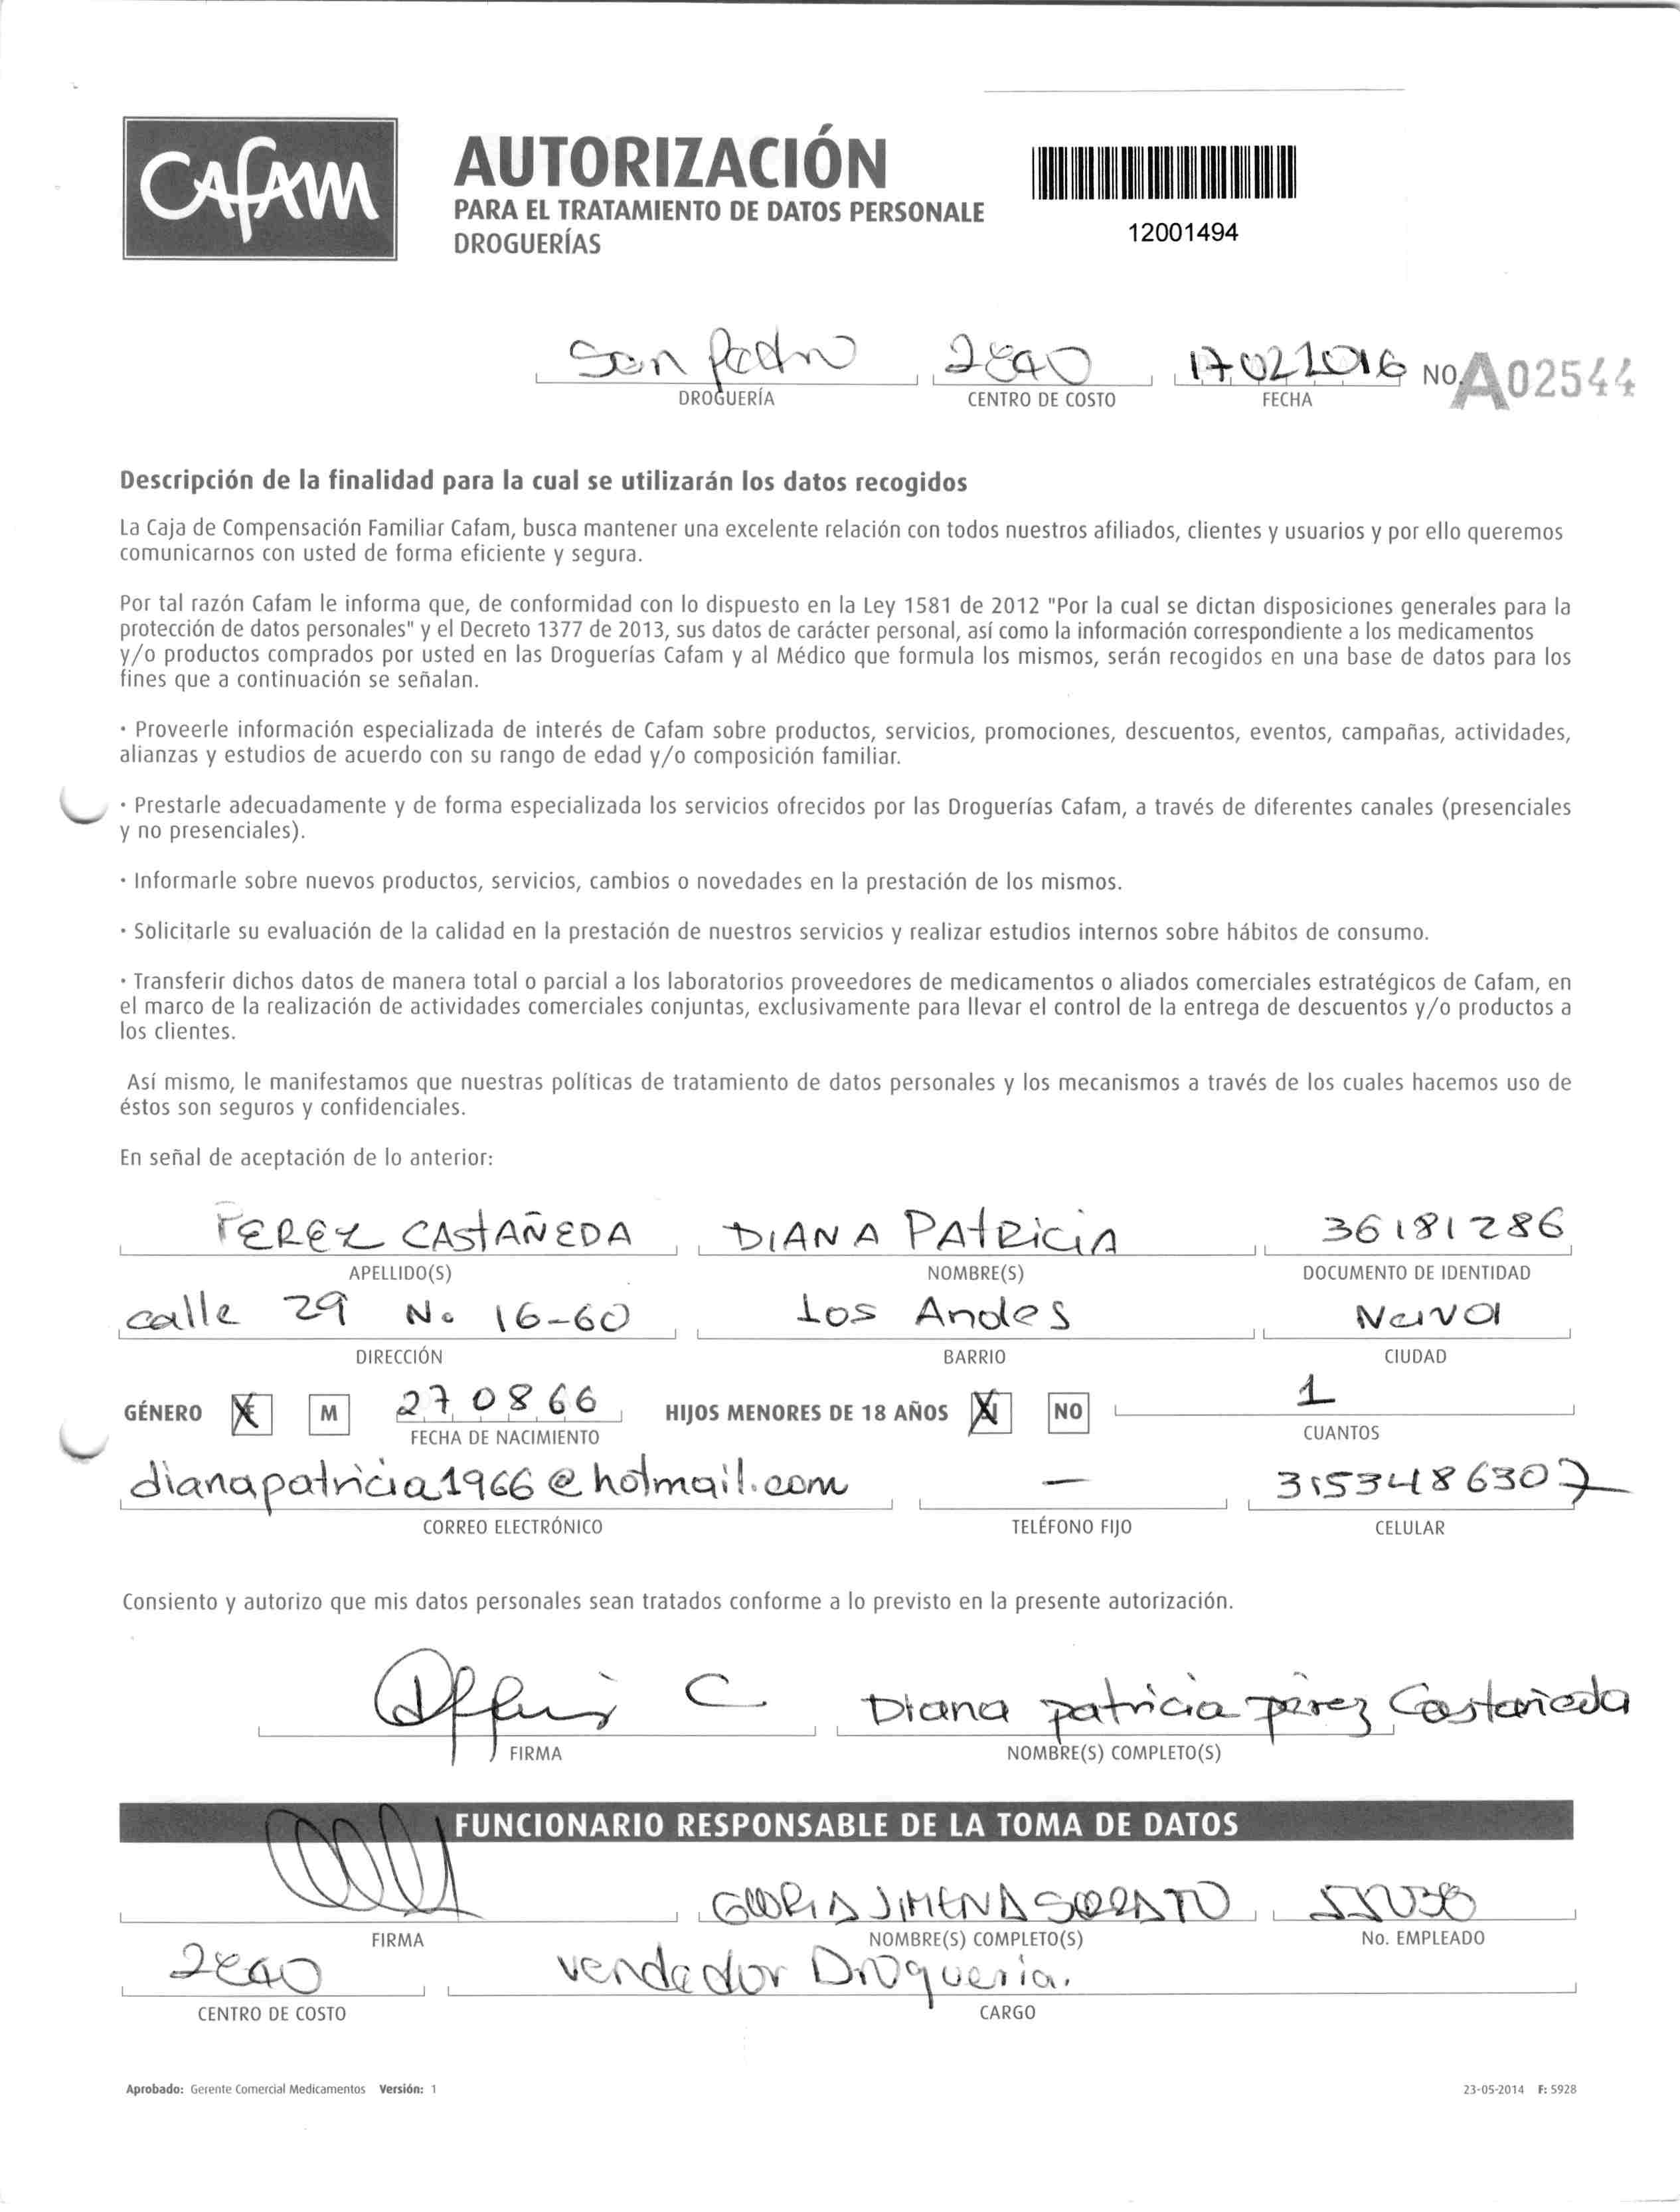 CAFAM
AUTORIZACIÓN
PARA EL TRATAMIENTO DE DATOS PERSONALE
DROGUERÍAS
12001494
San Pedro 2840 17022016 NO. A02544
DROGUERÍA CENTRO DE COSTO FECHA
Descripción de la finalidad para la cual se utilizarán los datos recogidos
La Caja de Compensación Familiar Cafam, busca mantener una excelente relación con todos nuestros afiliados, clientes y usuarios y por ello queremos
comunicarnos con usted de forma eficiente y segura.
Por tal razón Cafam le informa que, de conformidad con lo dispuesto en la Ley 1581 de 2012 "Por la cual se dictan disposiciones generales para la
protección de datos personales" y el Decreto 1377 de 2013, sus datos de carácter personal, así como la información correspondiente a los medicamentos
y/o productos comprados por usted en las Droguerías Cafam y al Médico que formula los mismos, serán recogidos en una base de datos para los
fines que a continuación se señalan.
· Proveerle información especializada de interés de Cafam sobre productos, servicios, promociones, descuentos, eventos, campañas, actividades,
alianzas y estudios de acuerdo con su rango de edad y/o composición familiar.
· Prestarle adecuadamente y de forma especializada los servicios ofrecidos por las Droguerías Cafam, a través de diferentes canales (presenciales
y no presenciales).
· Informarle sobre nuevos productos, servicios, cambios o novedades en la prestación de los mismos.
· Solicitarle su evaluación de la calidad en la prestación de nuestros servicios y realizar estudios internos sobre hábitos de consumo.
· Transferir dichos datos de manera total o parcial a los laboratorios proveedores de medicamentos o aliados comerciales estratégicos de Cafam, en
el marco de la realización de actividades comerciales conjuntas, exclusivamente para llevar el control de la entrega de descuentos y/o productos a
los clientes.
Así mismo, le manifestamos que nuestras políticas de tratamiento de datos personales y los mecanismos a través de los cuales hacemos uso de
éstos son seguros y confidenciales.
En señal de aceptación de lo anterior:
PEREZ CAStAÑEDA DIANA PAtRiciA 36181286
APELLIDO(S) NOMBRE(S) DOCUMENTO DE IDENTIDAD
calle 29 No 16-60 Los Andes Neiva
DIRECCIÓN BARRIO CIUDAD
GÉNERO X M 270866 HIJOS MENORES DE 18 AÑOS X NO 1
FECHA DE NACIMIENTO CUANTOS
dianapatricia1966@hotmail.com — 3153486307
CORREO ELECTRÓNICO TELÉFONO FIJO CELULAR
Consiento y autorizo que mis datos personales sean tratados conforme a lo previsto en la presente autorización.
Diana patricia pérez Castañeda
FIRMA NOMBRE(S) COMPLETO(S)
FUNCIONARIO RESPONSABLE DE LA TOMA DE DATOS
GLORIA JIMENA
FIRMA NOMBRE(S) COMPLETO(S) No. EMPLEADO
2840 vendedor Drogueria.
CENTRO DE COSTO CARGO
Aprobado: Gerente Comercial Medicamentos Versión: 1 23-05-2014 F: 5928